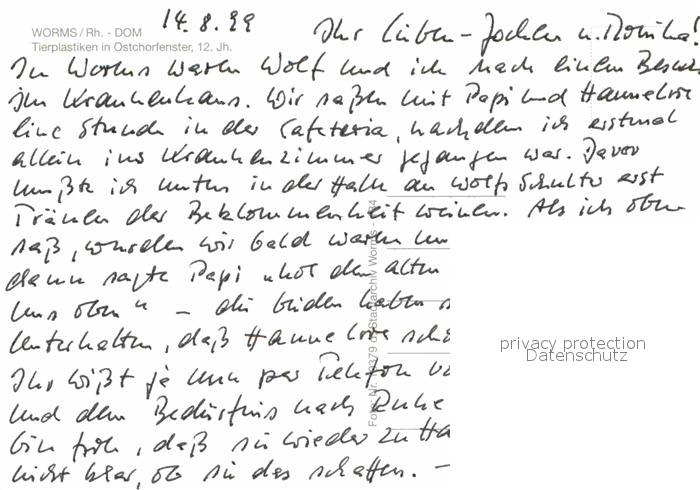 WORMS / Rh. - DOM
Tierplastiken in Ostchorfenster, 12. Jh.
14.8.99
Ihr Lieben - Jochen u. Monika!
In Worms waren Wolf und ich nach einem Besuch
im Krankenhaus. Wir saßen mit Papi und Hannelore
eine Stunde in der Cafeteria, nachdem ich erstmal
allein ins Krankenzimmer gegangen war. Davor
mußte ich unten in der Halle an Wolfs Schulter erst
Tränen der Beklommenheit weinen. Als ich oben
saß, wurden wir bald
dann sagte Papi „hol den alten
uns oben“ – die beiden haben
unterhalten, daß Hannelore
Ihr wißt ja nun per Telefon
und dem Bedürfnis nach Ruhe
bin froh, daß sie wieder zu
nicht klar, ob sie das schaffen. –
Stadtarchiv Worms
privacy protection
Datenschutz